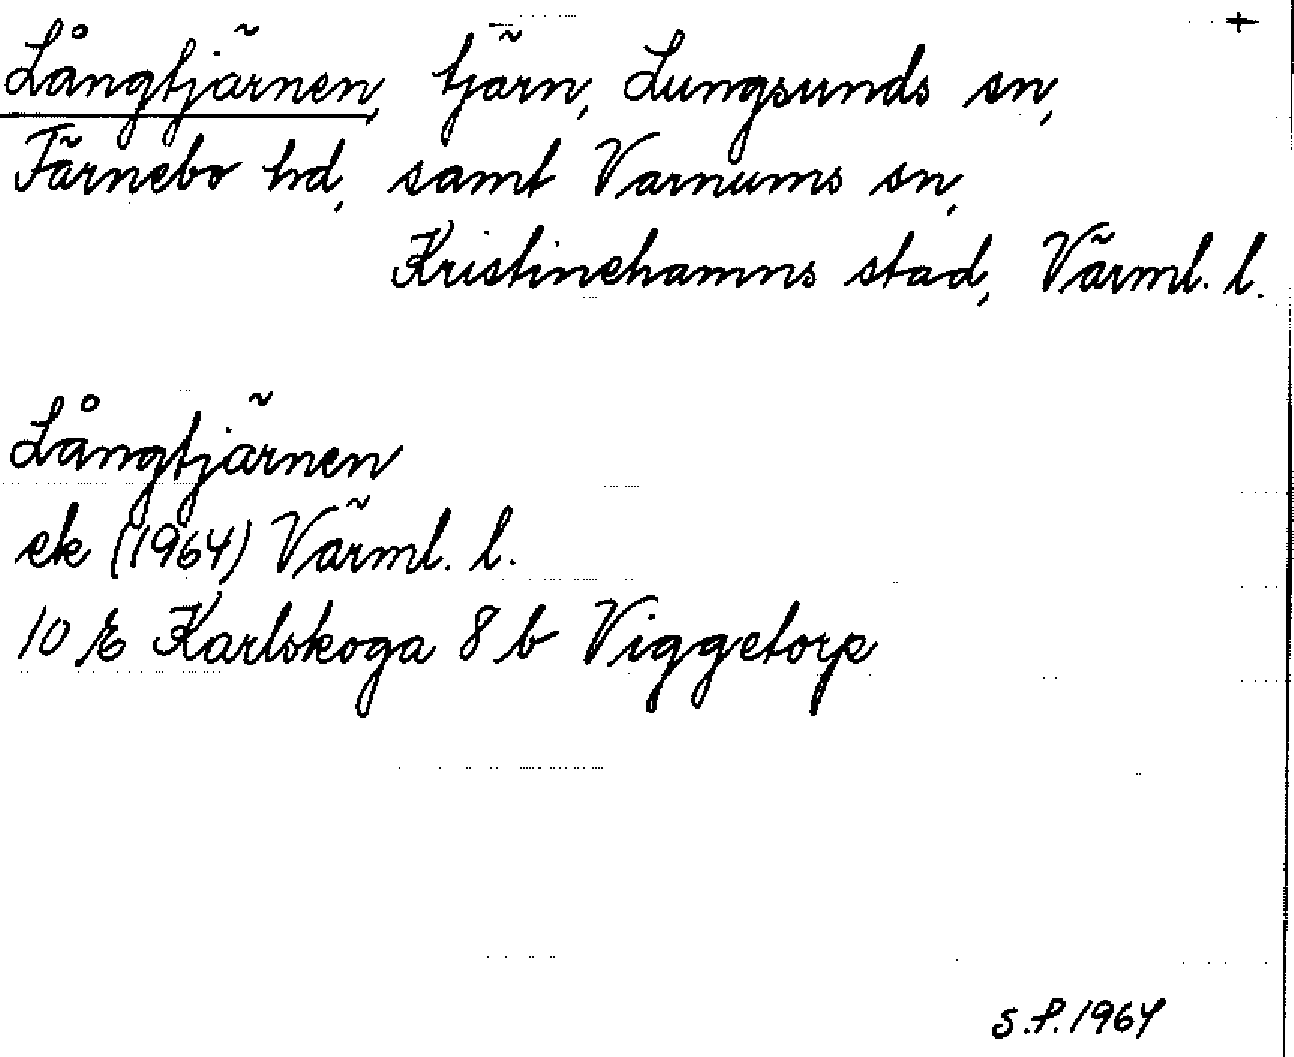 +
Långtjärnen, tjärn, Lungsunds sn,
Färnebo hd, samt Varnums sn,
Kristinehamns stad, Värml. l.
Långtjärnen
ek (1964) Värml. l.
10 E Karlskoga 8 b Viggetorp
S.P. 1964